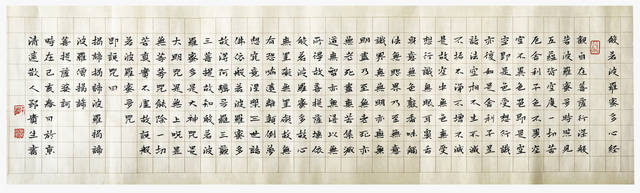 般若波羅蜜多心經
觀自在菩薩行深般
若波羅蜜多時照見
五蘊皆空度一切苦
厄舍利子色不異空
空不異色色即是空
空即是色受想行識
亦復如是舍利子是
諸法空相不生不滅
不垢不淨不增不減
是故空中無色無受
想行識無眼耳鼻舌
身意無色聲香味觸
法無眼界乃至無意
識界無無明亦無無
明盡乃至無老死亦
無老死盡無苦集滅
道無智亦無得以無
所得故菩提薩埵依
般若波羅蜜多故心
無罣礙無罣礙故無
有恐怖遠離顛倒夢
想究竟涅槃三世諸
佛依般若波羅蜜多
故得阿耨多羅三藐
三菩提故知般若波
羅蜜多是大神咒是
大明咒是無上咒是
無等等咒能除一切
苦真實不虛故說般
若波羅蜜多咒
即說咒曰
揭諦揭諦波羅揭諦
波羅僧揭諦
菩提薩婆訶
時在己亥春日於京
清遠散人鄒貴生書